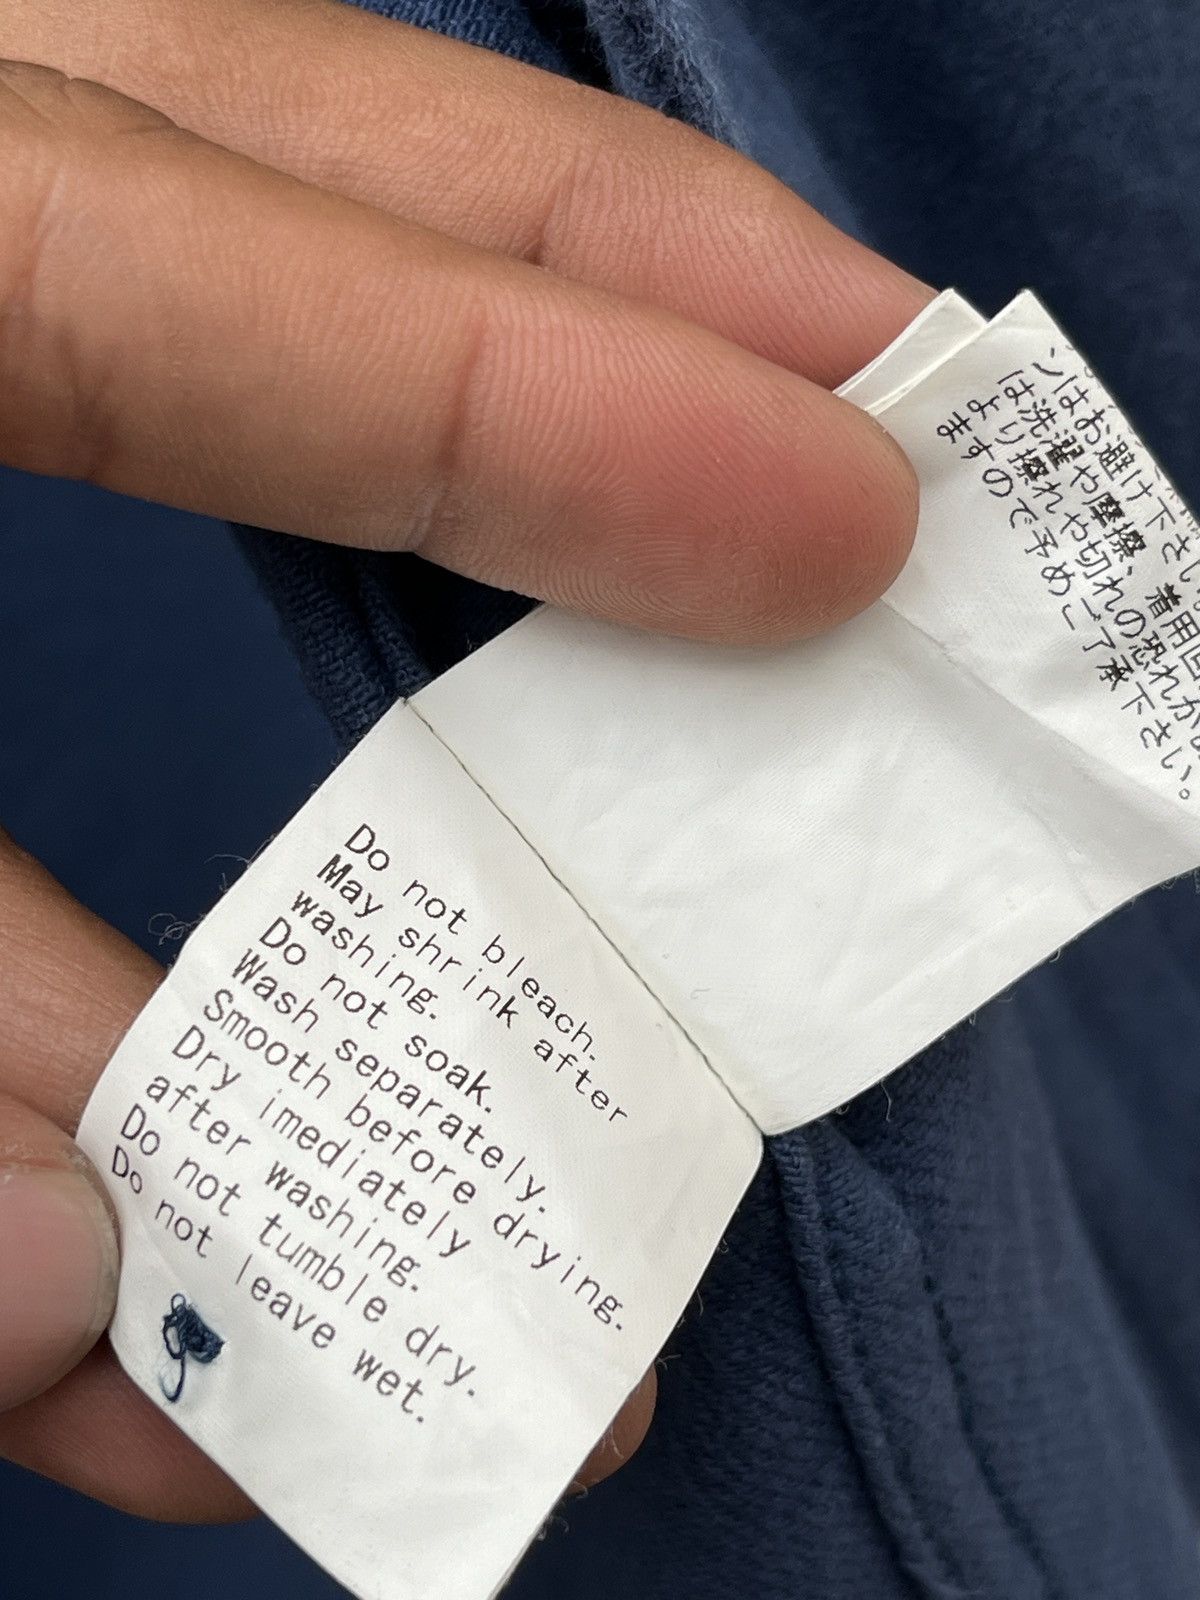 Do not bleach.
May shrink after
washing.
Do not soak.
Wash separately.
Smooth before drying.
Dry imediately
after washing.
Do not tumble dry.
Do not leave wet.
ンはお避け下さい。
は洗濯や摩擦、着用回
より擦れや切れの恐れが
ますので予めご了承下さい。